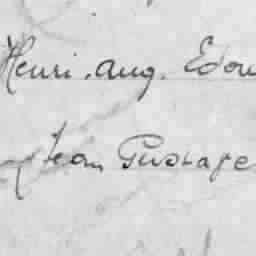 Henri. Aug. Edou
Jean Gustave